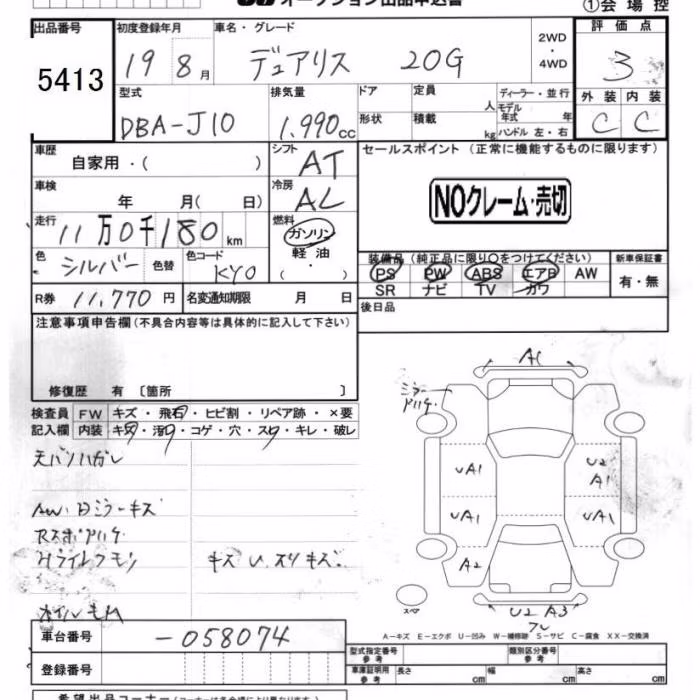 オークション出品申込書
①会場控
出品番号
5413
初度登録年月
19 8月
車名・グレード
デュアリス 20G
2WD
・
4WD
評価点
3
型式
DBA-J10
排気量
1,990cc
ドア
形状
定員 人
積載 kg
ディーラー・並行
モデル
年式 年
ハンドル 左・右
外装 内装
C C
車歴
自家用・( )
シフト
AT
セールスポイント (正常に機能するものに限ります)
NOクレーム・売切
車検
年 月( 日)
冷房
AC
走行
11万0千180km
燃料
ガソリン
軽油
( ・ )
色
シルバー
色替
色コード
KY0
装備品 (純正品に限り○をつけてください)
PS PW ABS エアB AW
SR ナビ TV カワ
新車保証書
有・無
R券 11,770円
名変通知期限 月 日
後日品
注意事項申告欄 (不具合内容等は具体的に記入して下さい)
修復歴 有 〔箇所 〕
検査員
記入欄
FW キズ・飛石・ヒビ割・リペア跡・×要
内装 キズ・汚レ・コゲ・穴・スレ・キレ・破レ
天バリハガレ
AW.Dミラーキズ
キズ U.スリキズ.
A1
ミラー
UA1
U2
A1
UA1
UA1
A2
スペア
U2 A3
A-キズ E-エクボ U-凹み W-補修跡 S-サビ C-腐食 XX-交換済
車台番号
-058074
登録番号
型式指定番号
参考
類別区分番号
参考
車庫証明用
参考
長さ cm
幅 cm
高さ cm
希望出品コーナー